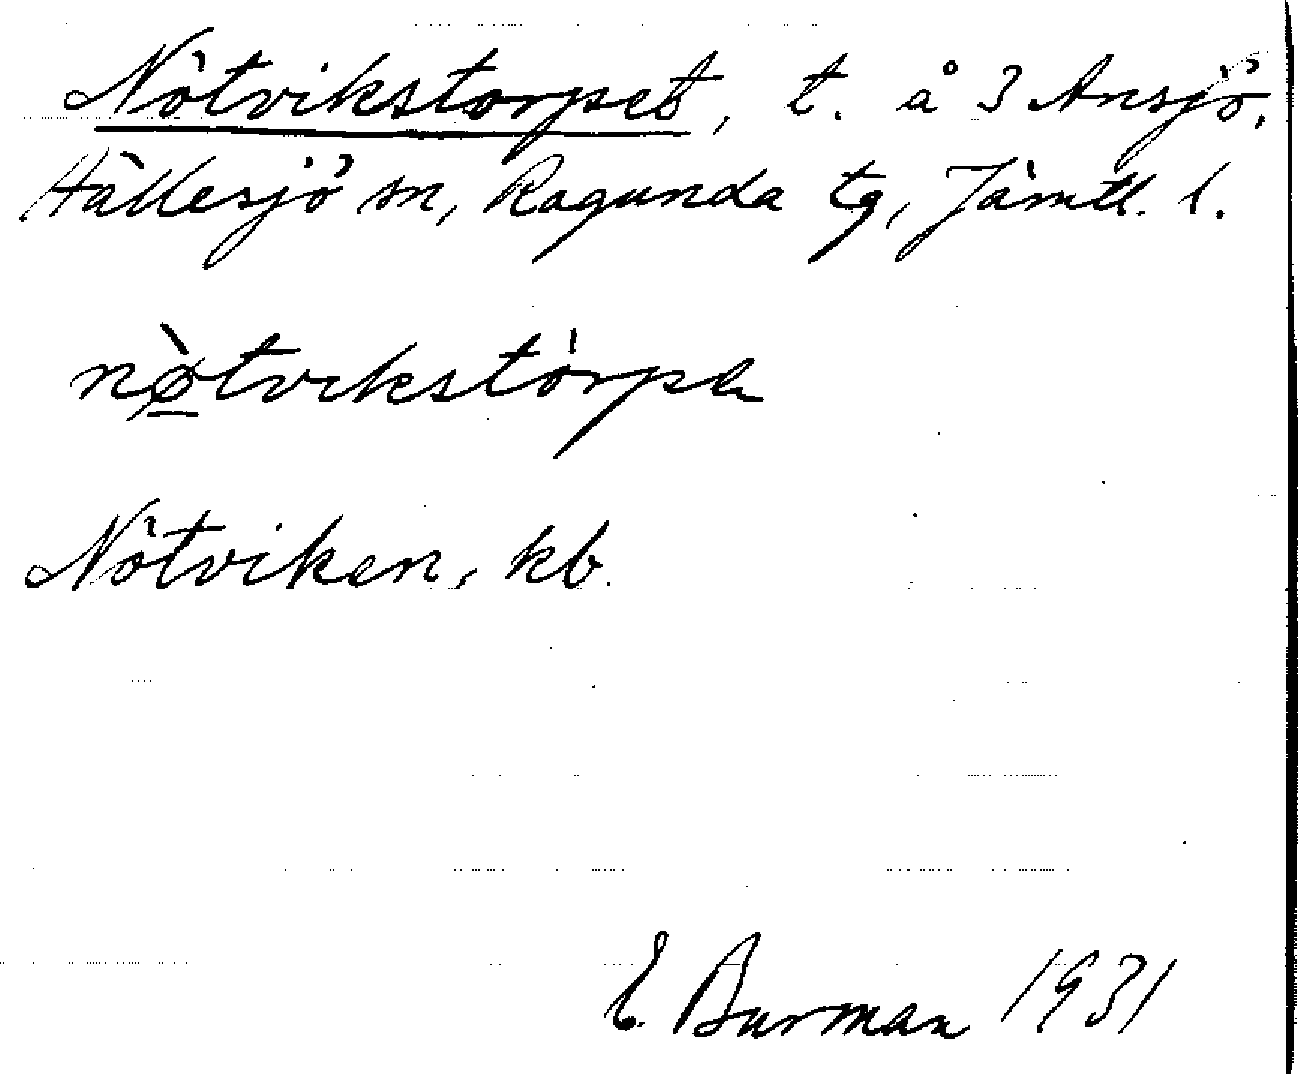 Nötvikstorpet, t. å 3 Ansjö,
Hällesjö sn, Ragunda tg, Jämtl. l.
nø̱̀tvikstórpa
Nötviken, kb.
E. Burman 1931